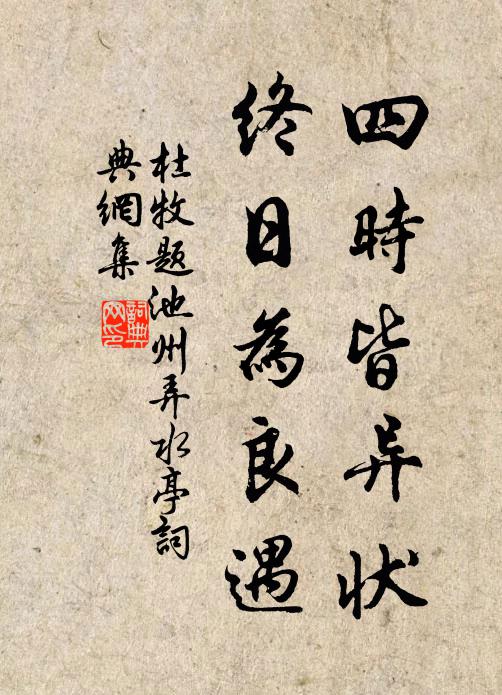 四時皆异狀
終日為良遇
杜牧題池州弄水亭詞
典網集
詞典網印